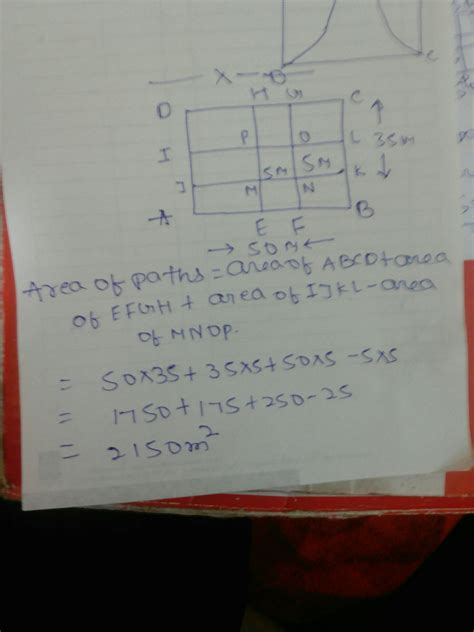 C
X
D H G C
P O L 35m
I
5M 5M K
J M N
A E F B
50M
Area of paths = area of ABCD + area
of EFGH + area of IJKL - area
of MNOP.
= 50x35 + 35x5 + 50x5 - 5x5
= 1750 + 175 + 250 - 25
= 2150m²